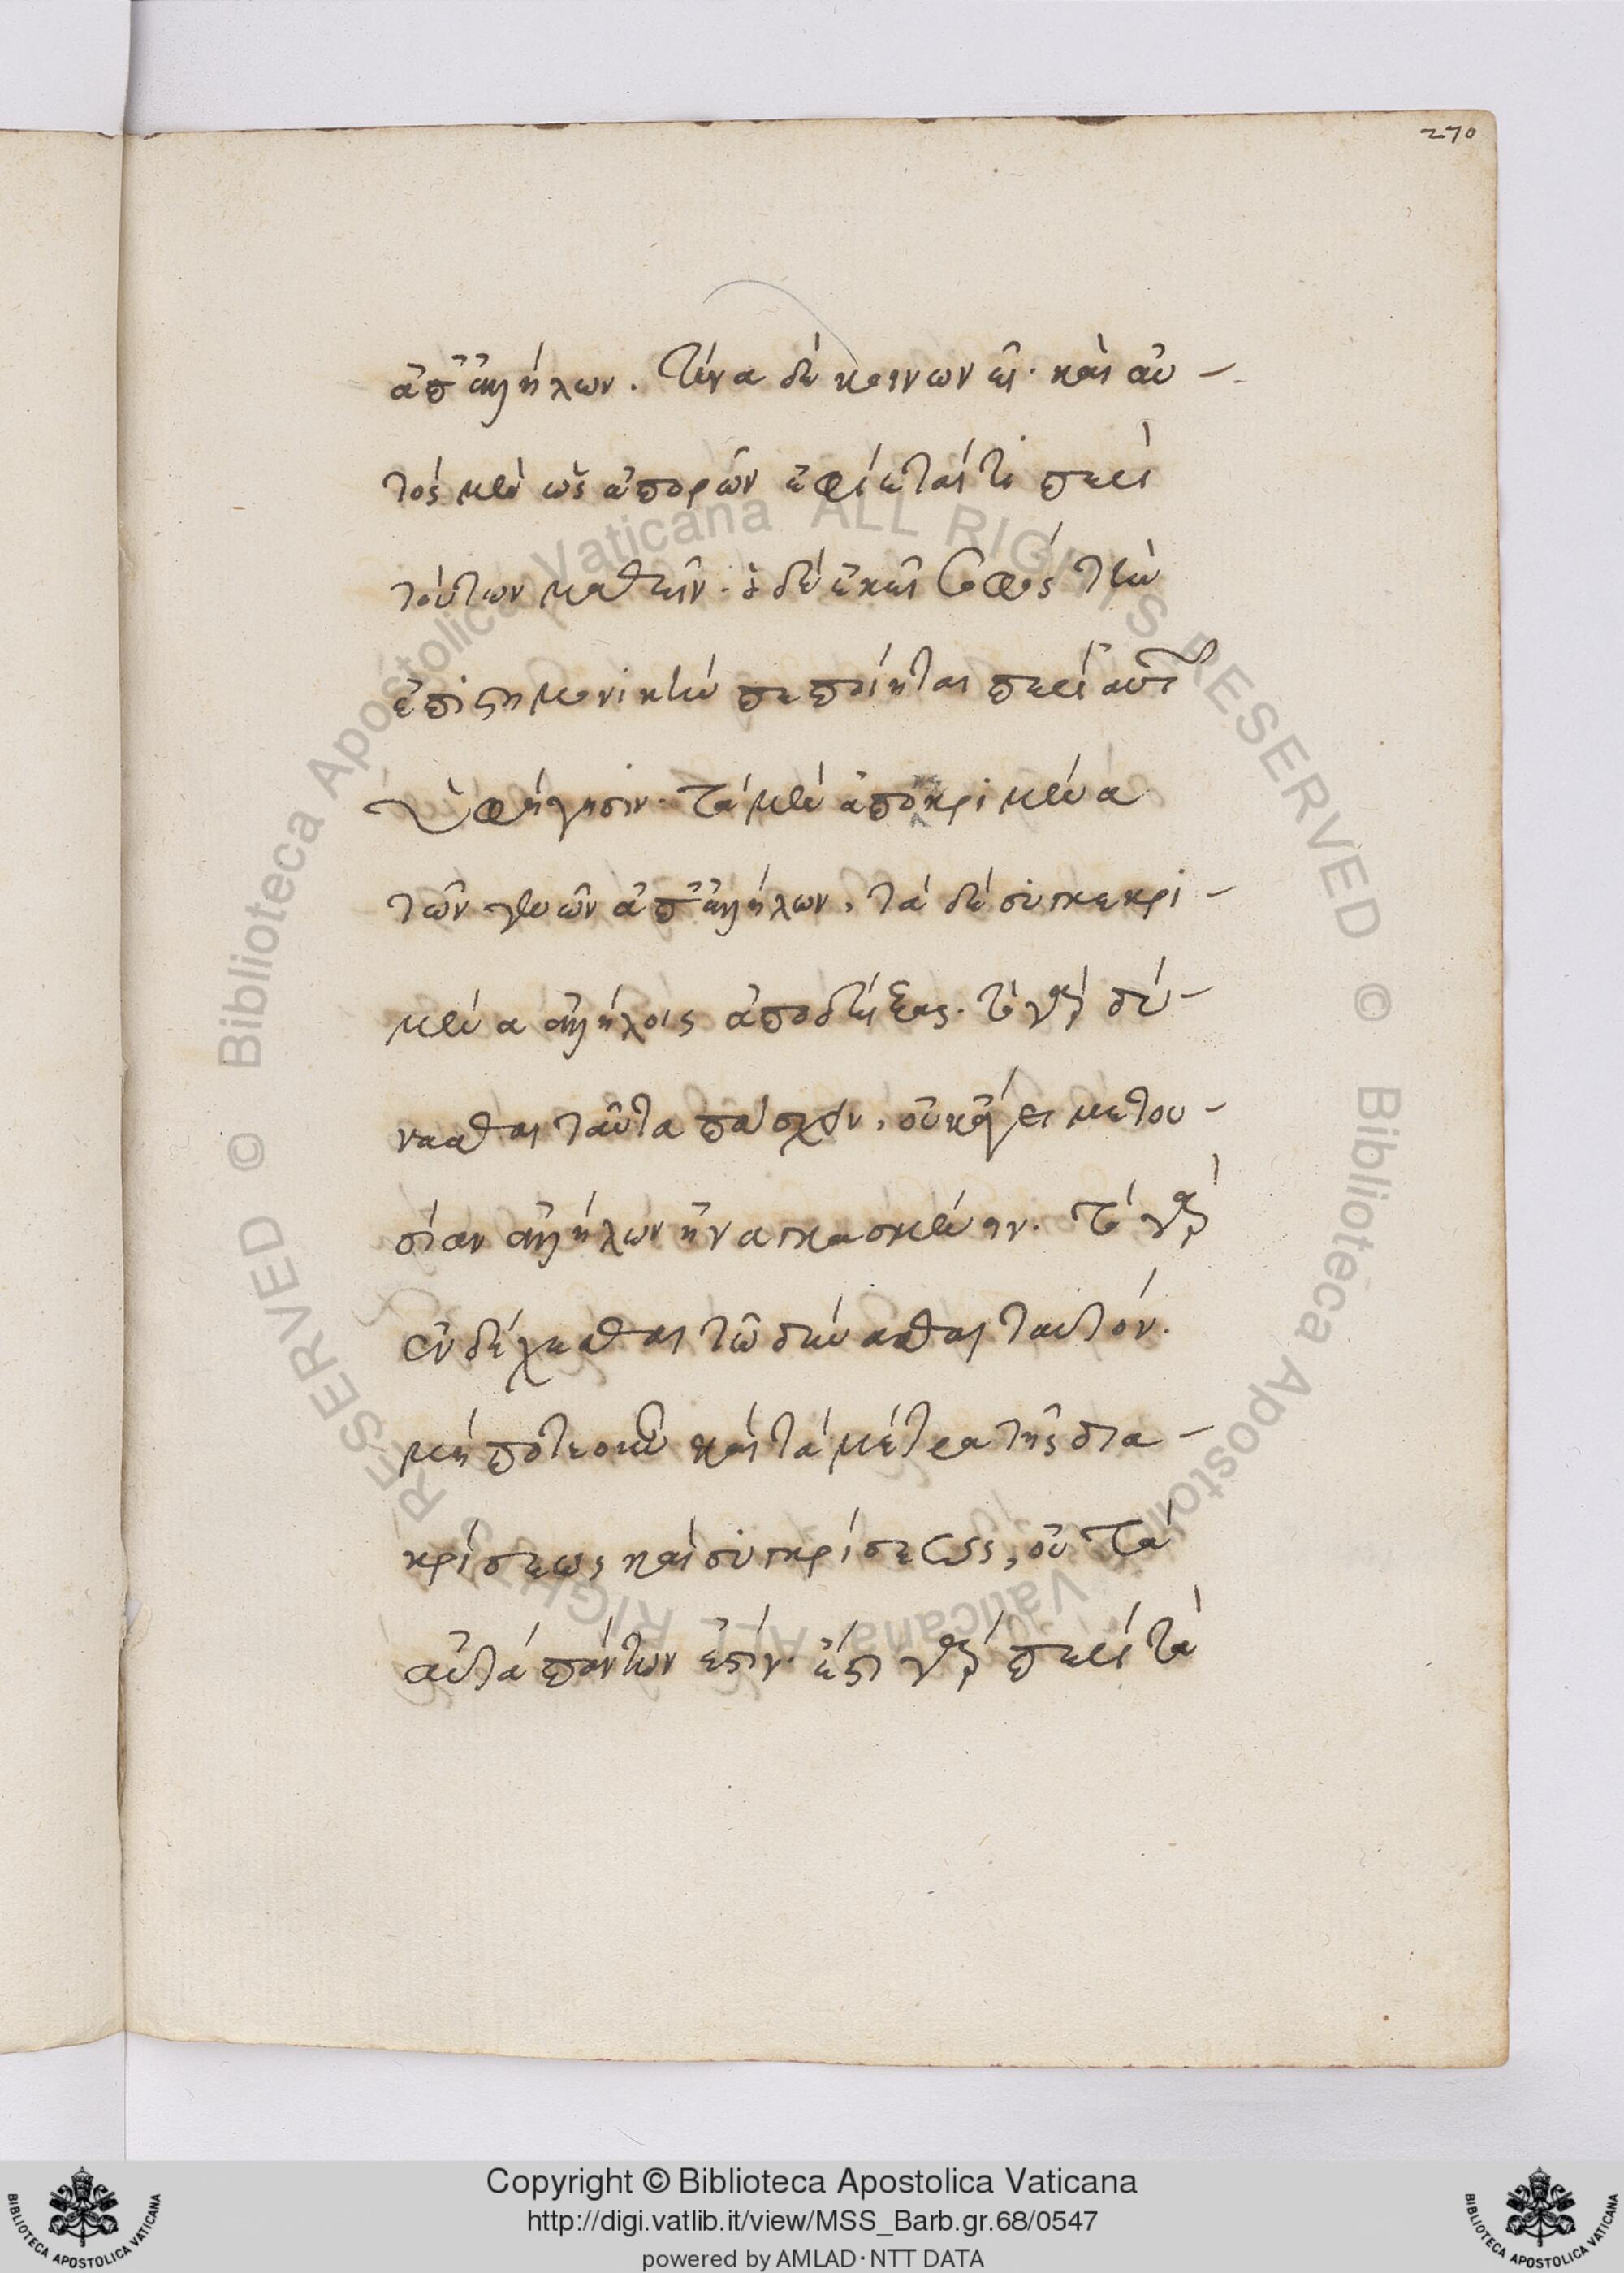 270
ἀπ' ἀλλήλων. τίνα δὲ κοινωνεῖ. καὶ αὐ-
τὸς μὲν ὡς ἀπορῶν ἐφίεταί τι περὶ
τούτων μαθεῖν. ὁ δὲ ἐκεῖ σοφὸς τὴν
ἐπιστημονικὴν πεποίηται περὶ αὐτῶν
ὑφήγησιν. τὰ μὲν ἀποκριμένα
τῶν γενῶν ἀπ' ἀλλήλων, τὰ δὲ συγκεκρι-
μένα ἀλλήλοις ἀποδείξας. τὸ γὰρ δύ-
νασθαι ταῦτα πάσχειν, οὐκ ἄγει μετου-
σίαν ἀλλήλων ἠναγκασμένην. τὸ γὰρ
ἐνδέχεσθαι τῶ δύνασθαι ταυτόν.
μήποτε οὖν καὶ τὰ μέτρα τῆς δια-
κρίσεως καὶ συγκρίσεως, οὐ τὰ
αὐτὰ πάντων ἐστίν. ἔστι γὰρ περὶ τὰ
Copyright © Biblioteca Apostolica Vaticana
http://digi.vatlib.it/view/MSS_Barb.gr.68/0547
powered by AMLAD·NTT DATA
BIBLIOTECA APOSTOLICA VATICANA
BIBLIOTECA APOSTOLICA VATICANA
© Biblioteca Apostolica Vaticana ALL RIGHTS RESERVED
© Biblioteca Apostolica Vaticana ALL RIGHTS RESERVED